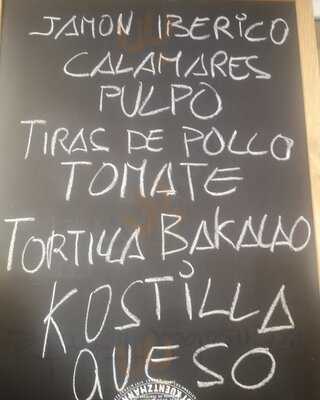 JAMON IBERICO
CALAMARES
PULPO
TIRAS DE POLLO
TOMATE
TORTILLA BAKALAO
KOSTILLA
QUESO
KUENTZMANN